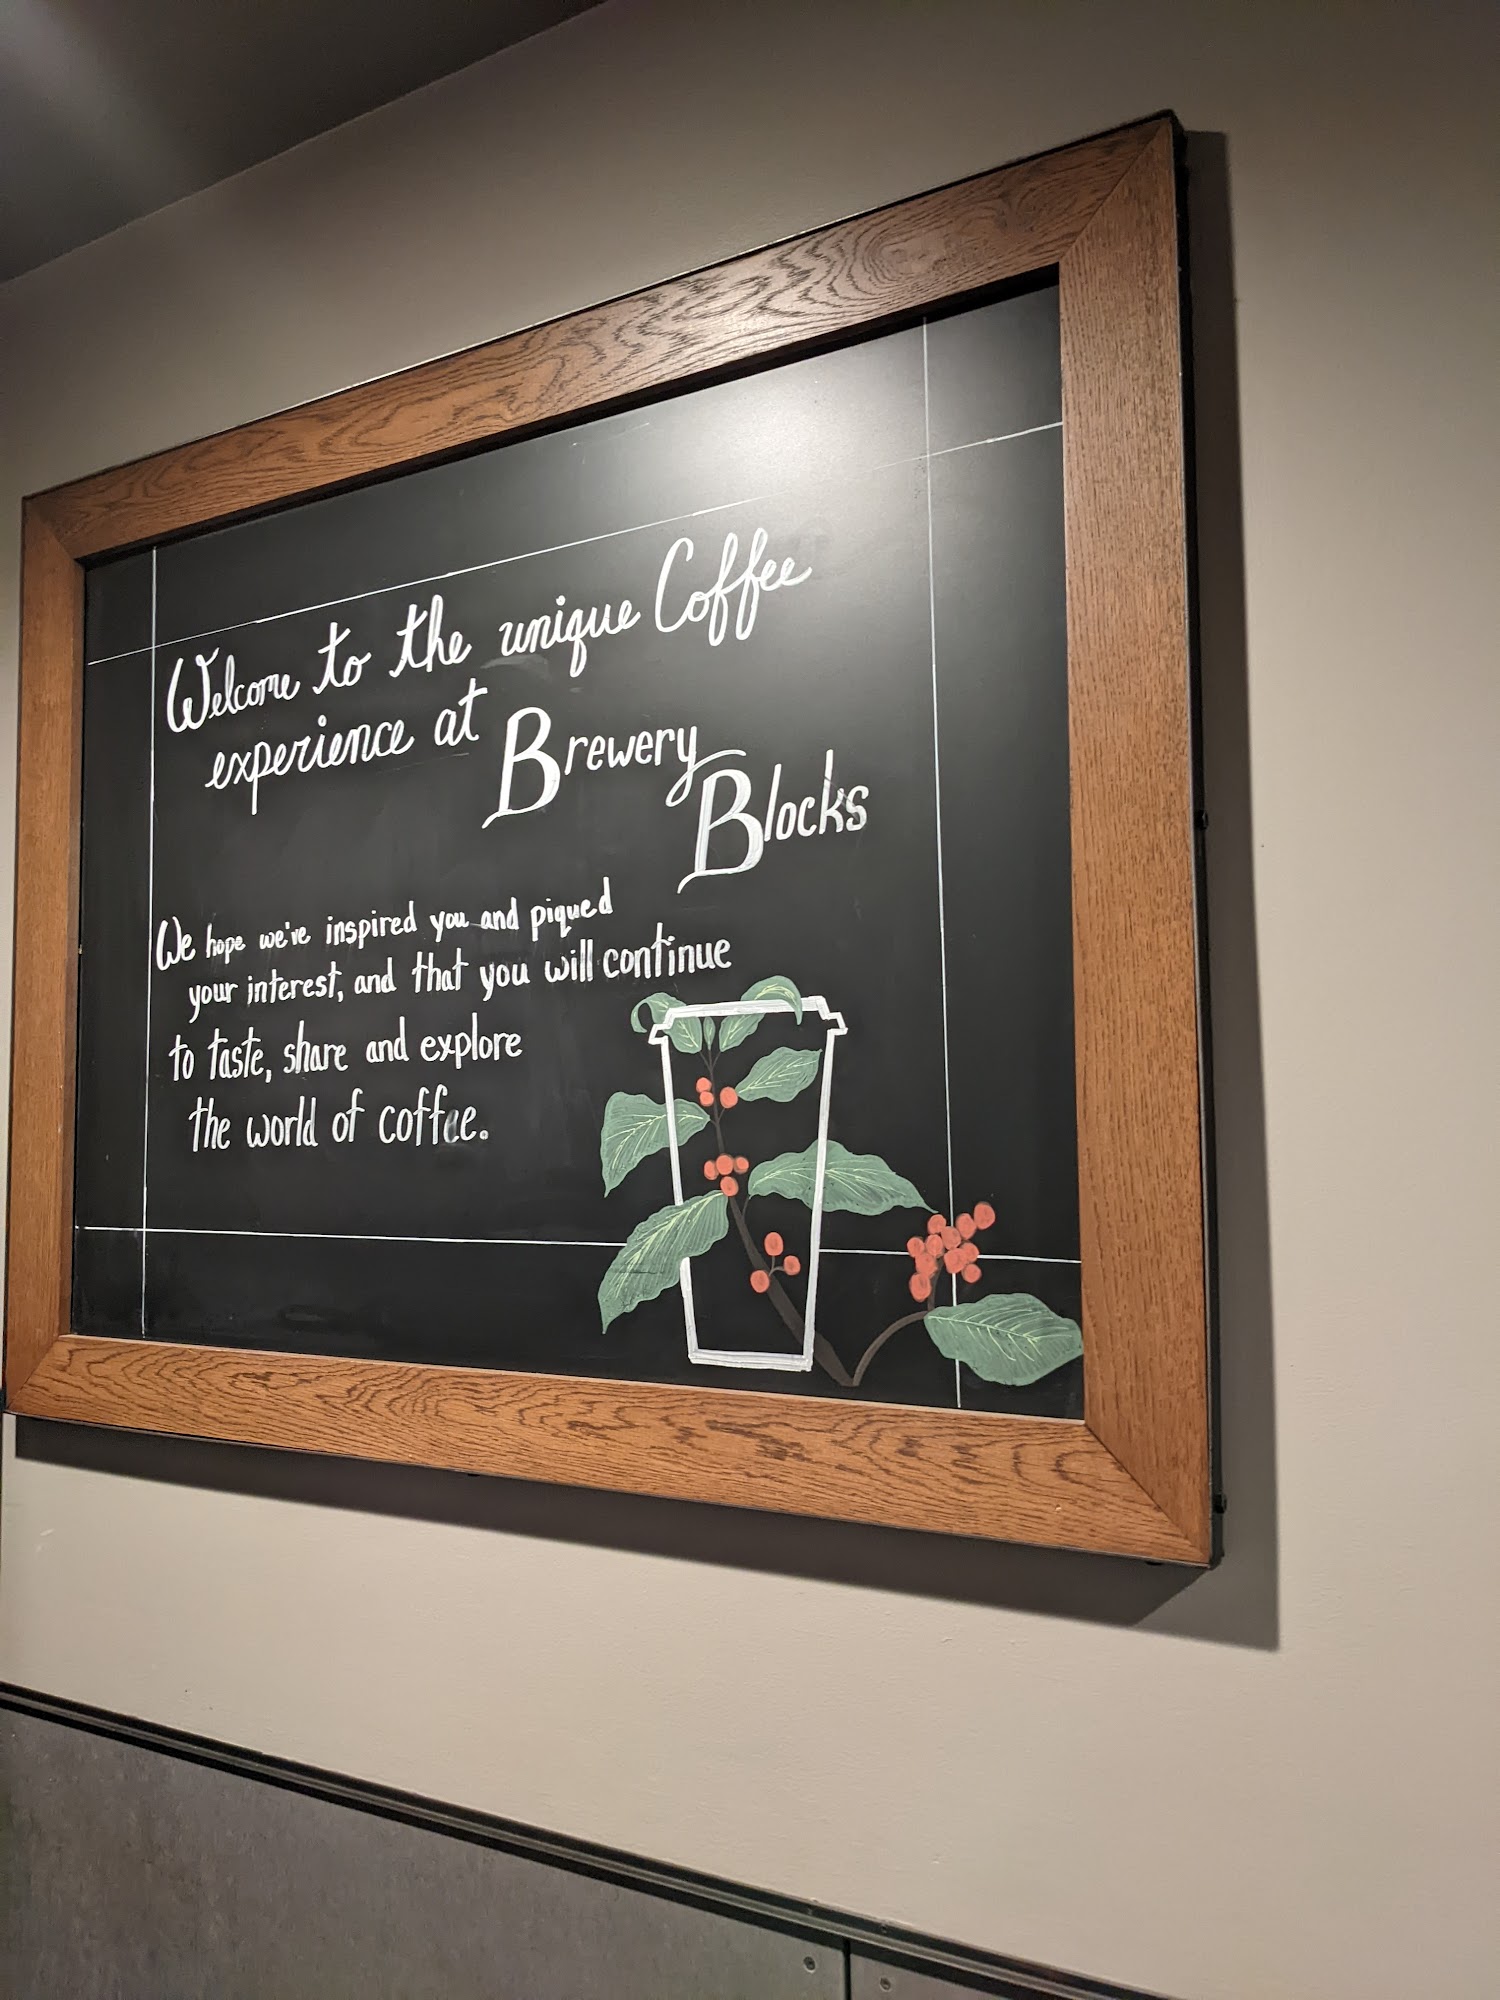 Welcome to the unique Coffee
experience at Brewery
Blocks
We hope we've inspired you and piqued
your interest, and that you will continue
to taste, share and explore
the world of coffee.